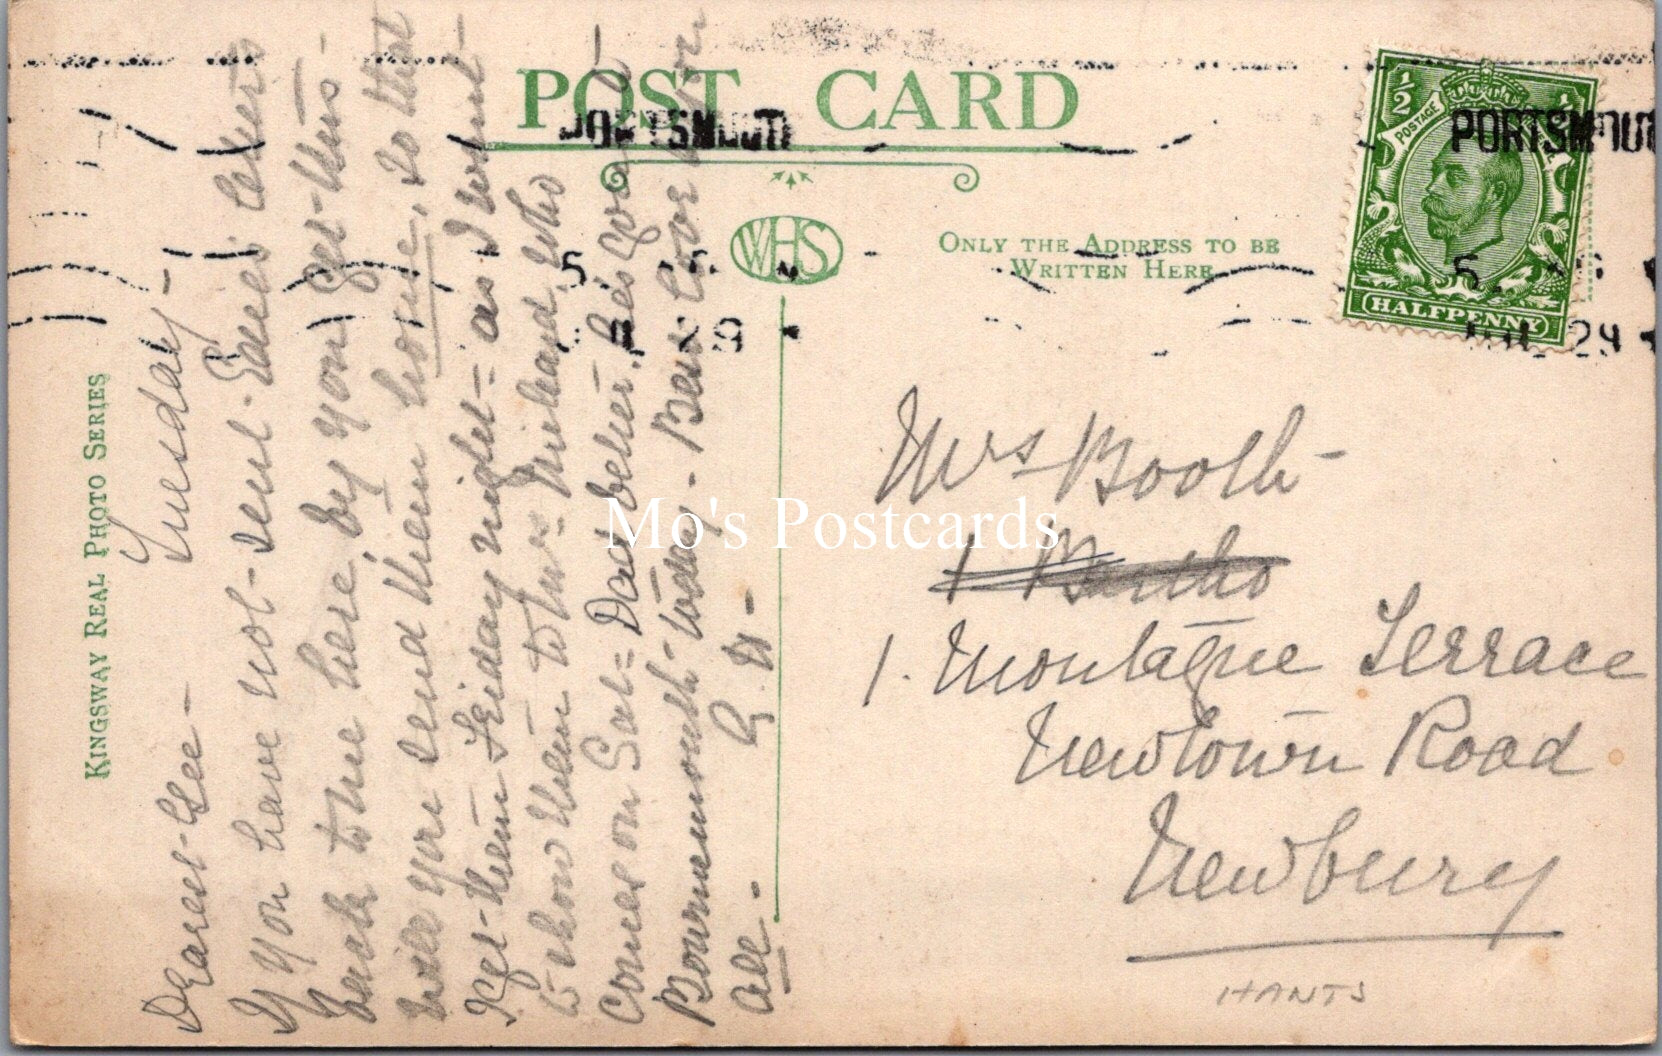 POST CARD
WHS
ONLY THE ADDRESS TO BE
WRITTEN HERE
KINGSWAY REAL PHOTO SERIES
½ ½
POSTAGE
HALFPENNY
PORTSMOUTH
5
29
PORTSMOUTH
5
29
Tuesday -
Dearest
If you have not sent letters
back to me here, by you get this -
will you send them home, so that
I get them Friday night = as I want
to show them to who
comes on Sat = Dad better, he's
Bournemouth today - Best love
all -
Mrs Booth -
1
1. Montague Terrace
Newtown Road
Newbury
HANTS
Mo's Postcards